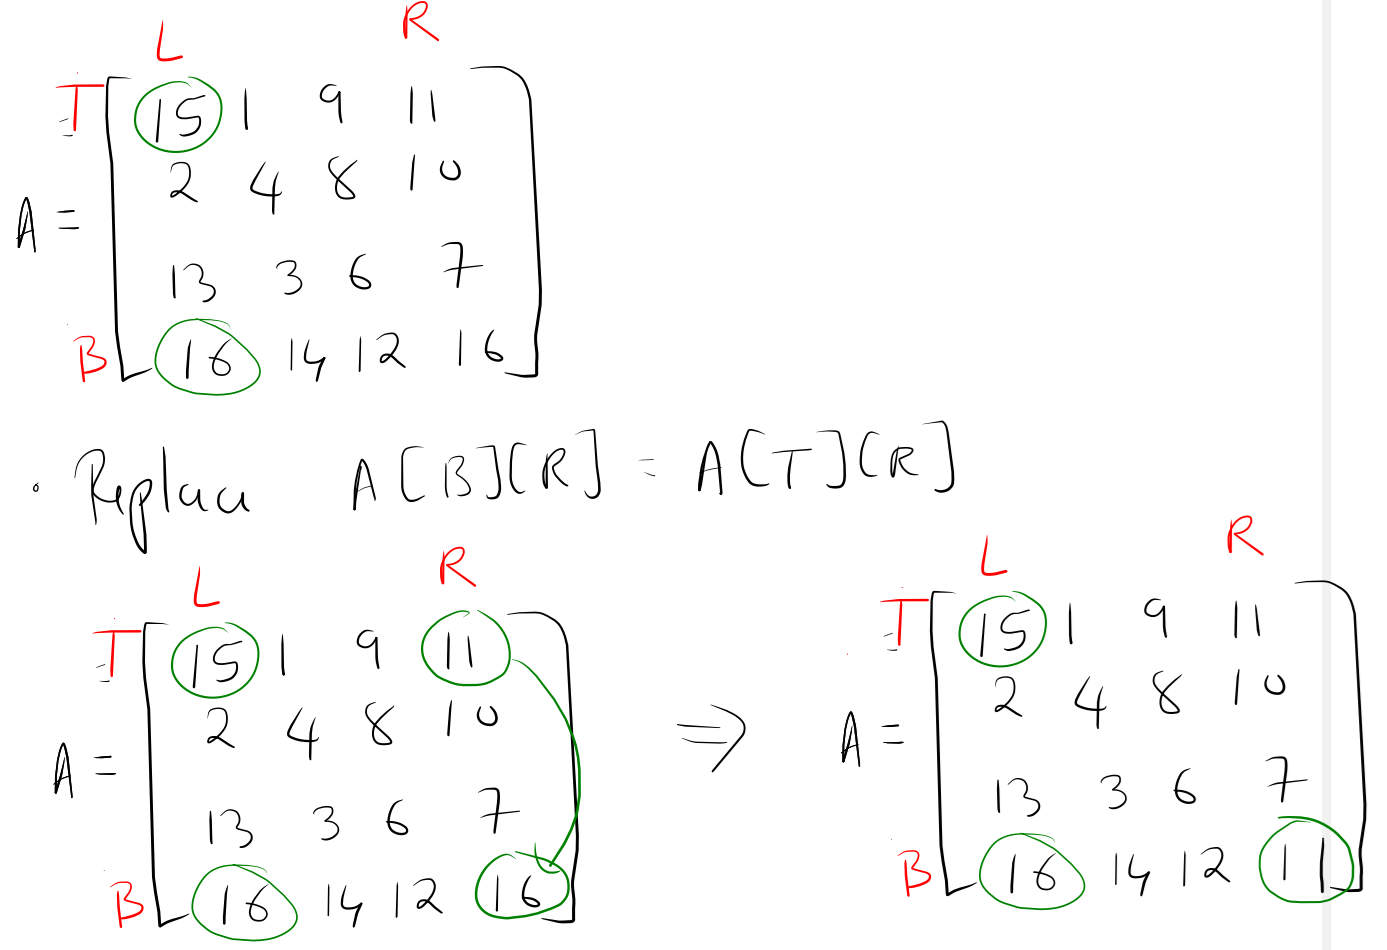 L R
T 15 1 9 11
2 4 8 10
A =
13 3 6 7
B 16 14 12 16
• Replace A[B][R] = A[T][R]
L R
T 15 1 9 11
2 4 8 10
A =
13 3 6 7
B 16 14 12 16
⇒
L R
T 15 1 9 11
2 4 8 10
A =
13 3 6 7
B 16 14 12 11